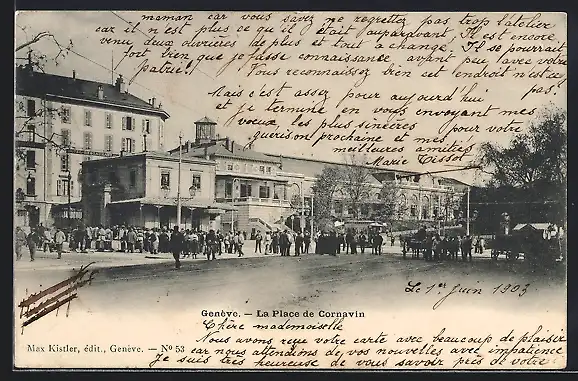 maman car vous savez ne regrettez pas trop l'atelier
car il n'est plus ce qu'il était auparavant. Il est encore
venu deux ouvrières de plus et tout a changé. Il se pourrait
fort bien que je fasse connaissance avant peu avec votre
patrie! Vous reconnaissez bien cet endroit n'est-ce
pas.
Mais c'est assez pour aujourd'hui
et je termine en vous envoyant mes
voeux les plus sincères pour votre
guérison prochaine et mes
meilleures amitiés
Marie Tissot
Genève. — La Place de Cornavin
Le 1er Juin 1903
Chère mademoiselle
Nous avons reçu votre carte avec beaucoup de plaisir
car nous attendions de vos nouvelles avec impatience
Je suis très heureuse de vous savoir près de votre
Max Kistler, édit., Genève. — No 53